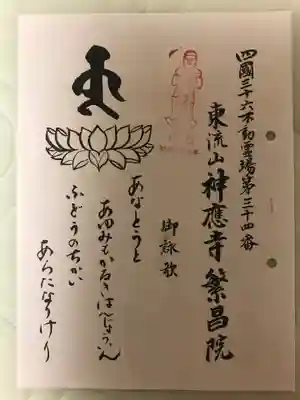 四國三十六不動霊場第三十四番
東流山神應寺繁昌院
御詠歌
あなとうと
あゆみもかろきはんじょういん
ふどうのちかい
あらたなりけり